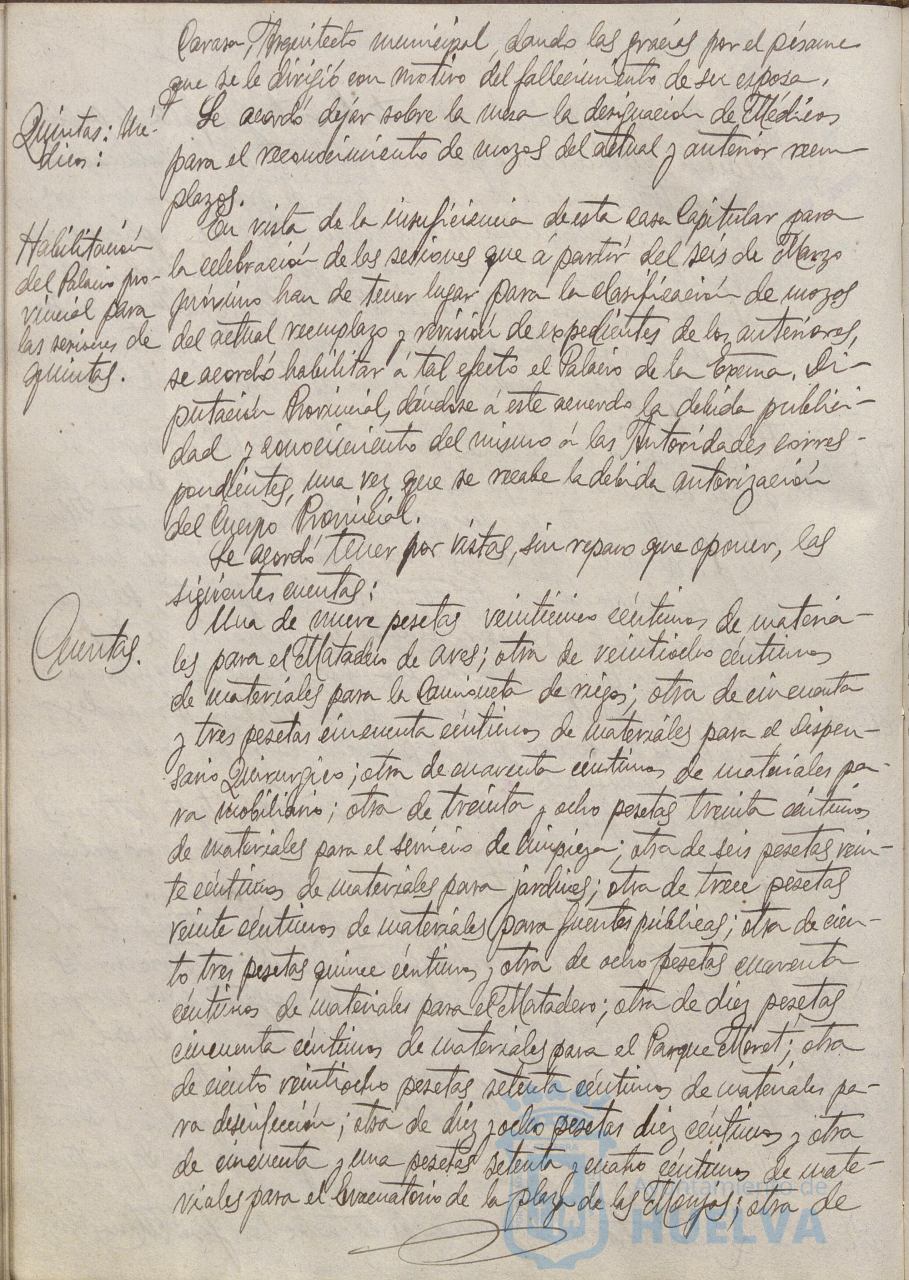 Carasa, Arquitecto municipal, dando las gracias por el pésame
que se le dirigió con motivo del fallecimiento de su esposa.
Quintas: Mé-
dicos:
Se acordó dejar sobre la mesa la designación de Médicos
para el reconocimiento de mozos del actual y anterior reem-
plazos.
Habilitación
del Palacio pro-
vincial para
las sesiones de
quintas.
En vista de la insuficiencia de esta casa Capitular para
la celebración de las sesiones que á partir del seis de Marzo
próximo han de tener lugar para la clasificación de mozos
del actual reemplazo y revisión de expedientes de los anteriores,
se acordó habilitar á tal efecto el Palacio de la Exema. Di-
putación Provincial, dándose á este acuerdo la debida publici-
dad y conocimiento del mismo á las Autoridades corres-
pondientes, una vez que se recabe la debida autorización
del Cuerpo Provincial.
Se acordó tener por vistas, sin reparo que oponer, las
siguientes cuentas:
Cuentas.
Una de nueve pesetas veinticinco céntimos de materia-
les para el Matadero de aves; otra de veintiocho céntimos
de materiales para la Camioneta de riegos; otra de cincuenta
y tres pesetas cincuenta céntimos de materiales para el Dispen-
sario Quirurgico; otra de cuarenta céntimos de materiales pa-
ra mobiliario; otra de treinta y ocho pesetas treinta céntimos
de materiales para el servicio de limpieza; otra de seis pesetas vein-
te céntimos de materiales para jardines; otra de trece pesetas
veinte céntimos de materiales para fuentes públicas; otra de cien-
to tres pesetas quince céntimos y otra de ocho pesetas cuarenta
céntimos de materiales para el Matadero; otra de diez pesetas
cincuenta céntimos de materiales para el Parque Moret; otra
de ciento veintiocho pesetas setenta céntimos de materiales pa-
ra desinfección; otra de diez y ocho pesetas diez céntimos y otra
de cincuenta y una pesetas setenta y cuatro céntimos de mate-
riales para el Evacuatorio de la plaza de las Monjas; otra de
Ayuntamiento de
HUELVA